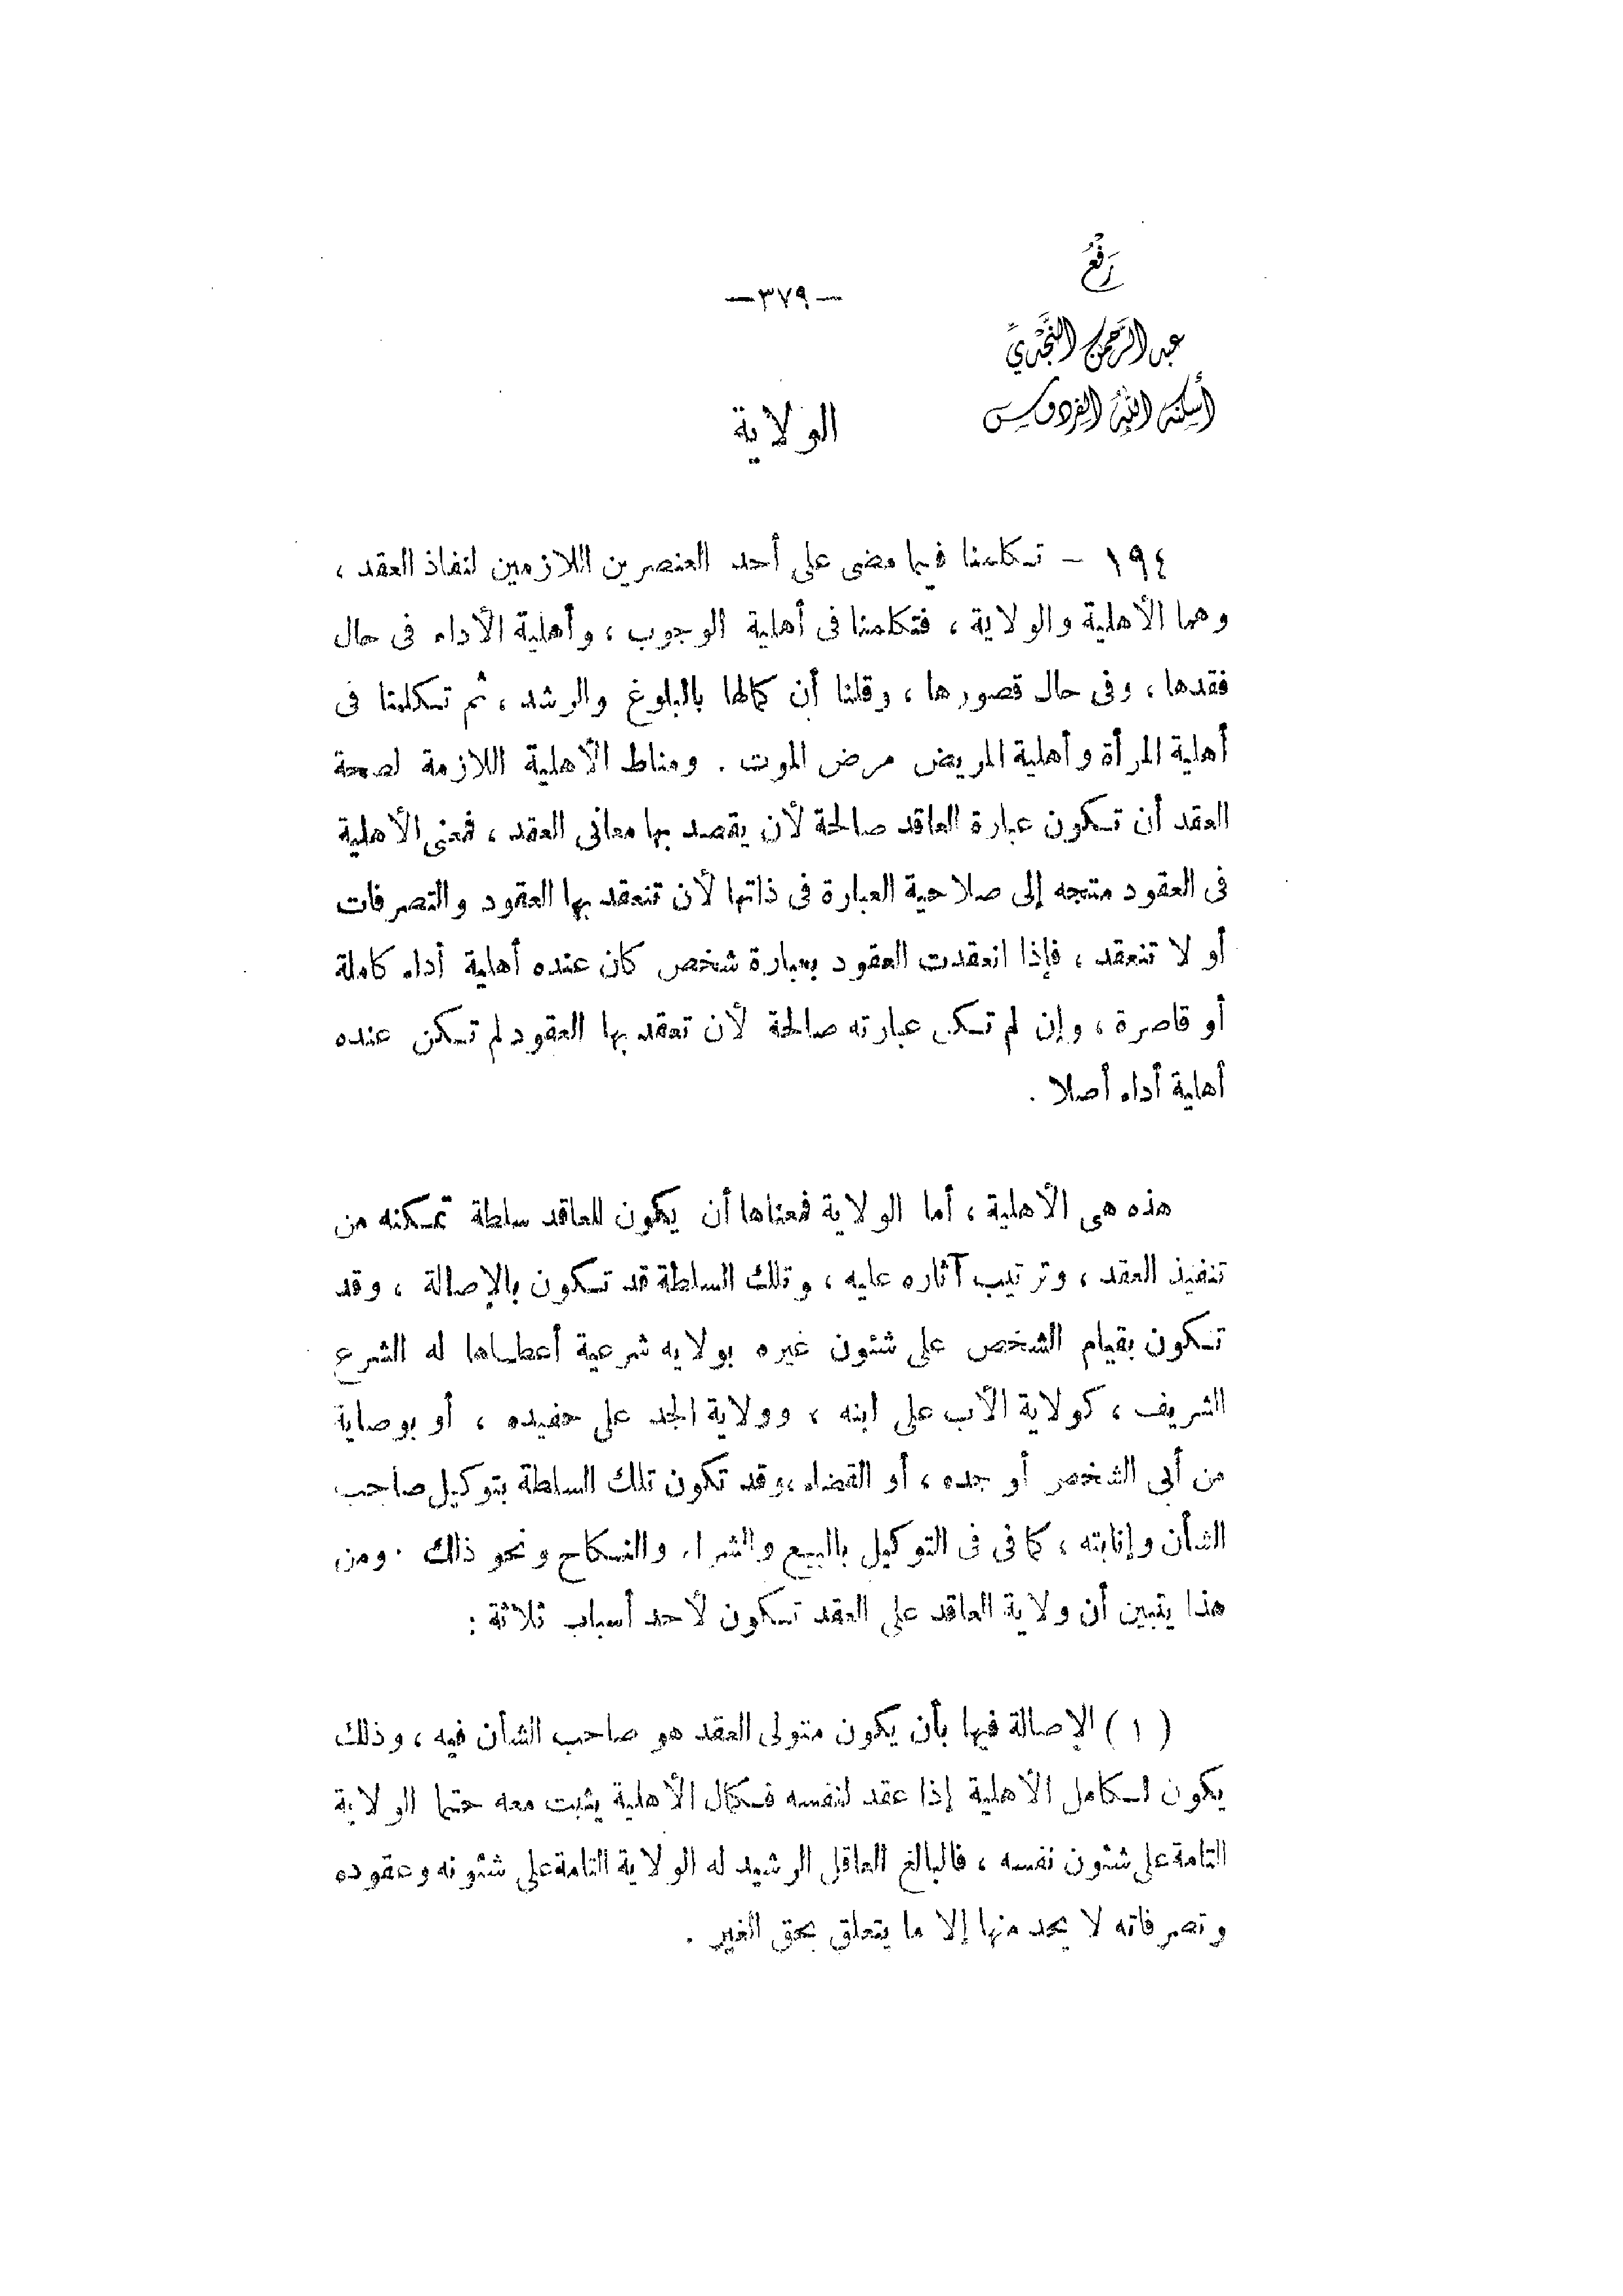 رَفْعُ
—٣٧٩—
عبد الرَّحمن النَّجْديّ
أسكنه اللّٰه الفردوس
الولاية
١٩٤ – تكلمنا فيما مضى على أحد العنصرين اللازمين لنفاذ العقد ،
وهما الأهلية والولاية ، فتكلمنا فى أهلية الوجوب ، وأهلية الأداء فى حال
فقدها ، وفى حال قصورها ، وقلنا أن كمالها بالبلوغ والرشد ، ثم تكلمنا فى
أهلية المرأة وأهلية المريض مرض الموت . ومناط الأهلية اللازمة لصحة
العقد أن تكون عبارة العاقد صالحة لأن يقصد بها معانى العقد ، فمعنى الأهلية
فى العقود متجه إلى صلاحية العبارة فى ذاتها لأن تنعقد بها العقود والتصرفات
أو لا تنعقد ، فإذا انعقدت العقود بعبارة شخص كان عنده أهلية أداء كاملة
أو قاصرة ، وإن لم تكن عبارته صالحة لأن تعقد بها العقود لم تكن عنده
أهلية أداء أصلا .
هذه هى الأهلية ، أما الولاية فمعناها أن يكون للعاقد سلطة تمكنه من
تنفيذ العقد ، وترتيب آثاره عليه ، وتلك السلطة قد تكون بالإصالة ، وقد
تكون بقيام الشخص على شئون غيره بولايه شرعية أعطاها له الشرع
الشريف ، كولاية الأب على ابنه ، وولاية الجد على حفيده ، أو بوصاية
من أبى الشخص أو جده ، أو القضاء ، وقد تكون تلك السلطة بتوكيل صاحب
الشأن وإنابته ، كما فى فى التوكيل بالبيع والشراء والنكاح ونحو ذلك . ومن
هذا يتبين أن ولاية العاقد على العقد تكون لأحد أسباب ثلاثة :
( ١ ) الإصالة فيها بأن يكون متولى العقد هو صاحب الشأن فيه ، وذلك
يكون لكامل الأهلية إذا عقد لنفسه فكمال الأهلية يثبت معه حتما الولاية
التامة على شئون نفسه ، فالبالغ العاقل الرشيد له الولاية التامة على شئونه وعقوده
وتصرفاته لا يحد منها إلا ما يتعلق بحق الغير .